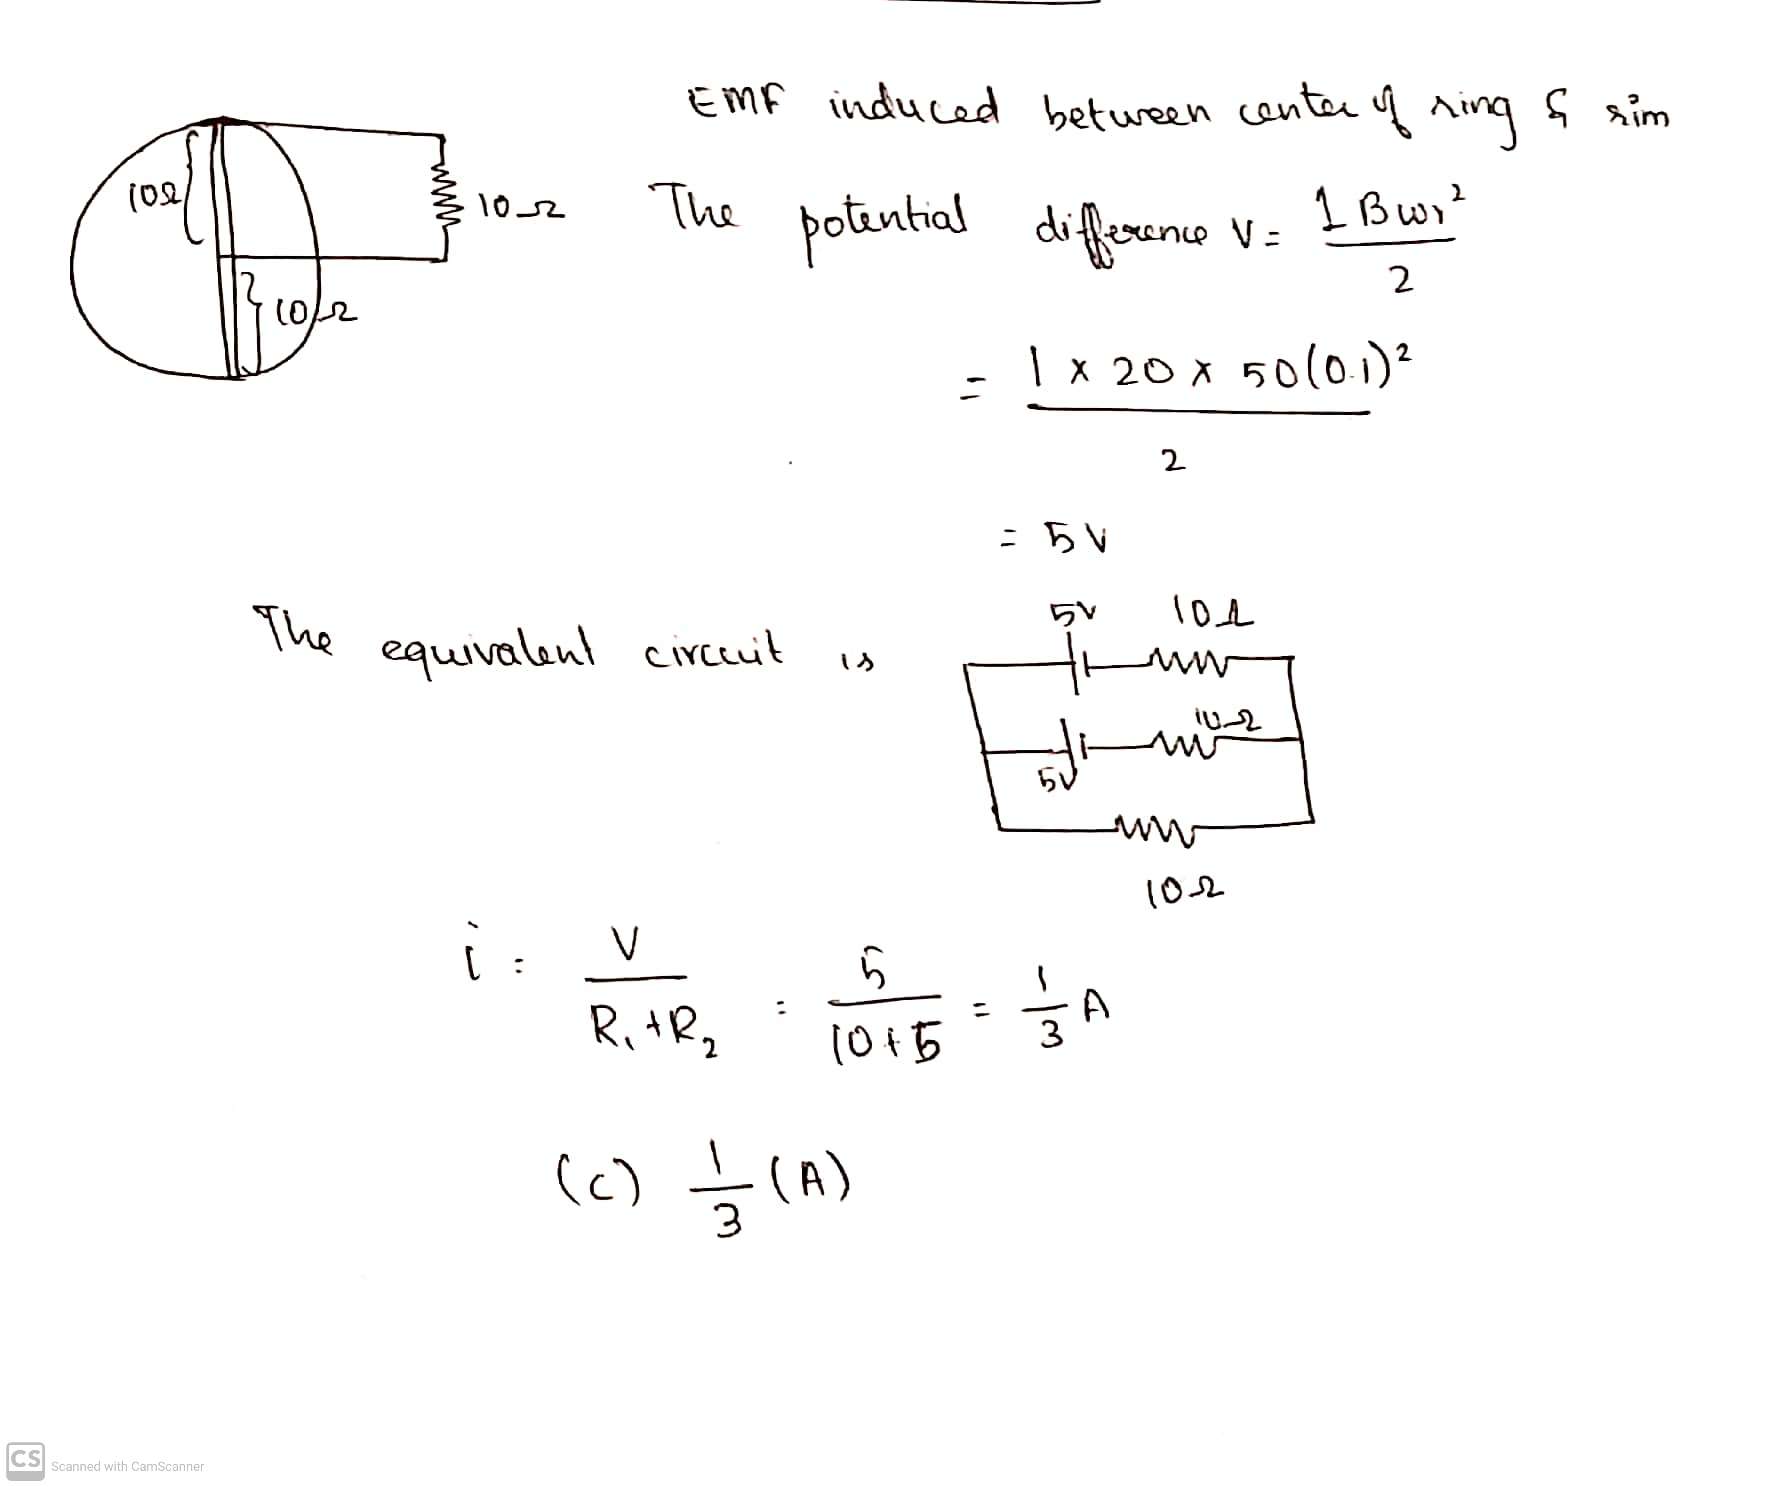 EMF induced between center of ring & rim
10Ω
10Ω
10Ω
The potential difference V = 1 Bωr²
2
= 1 x 20 x 50(0.1)²
2
= 5V
The equivalent circuit is
5V 10Ω
10Ω
5V
10Ω
i = V / R₁+R₂ = 5 / 10+5 = 1/3 A
(C) 1/3 (A)
CS Scanned with CamScanner